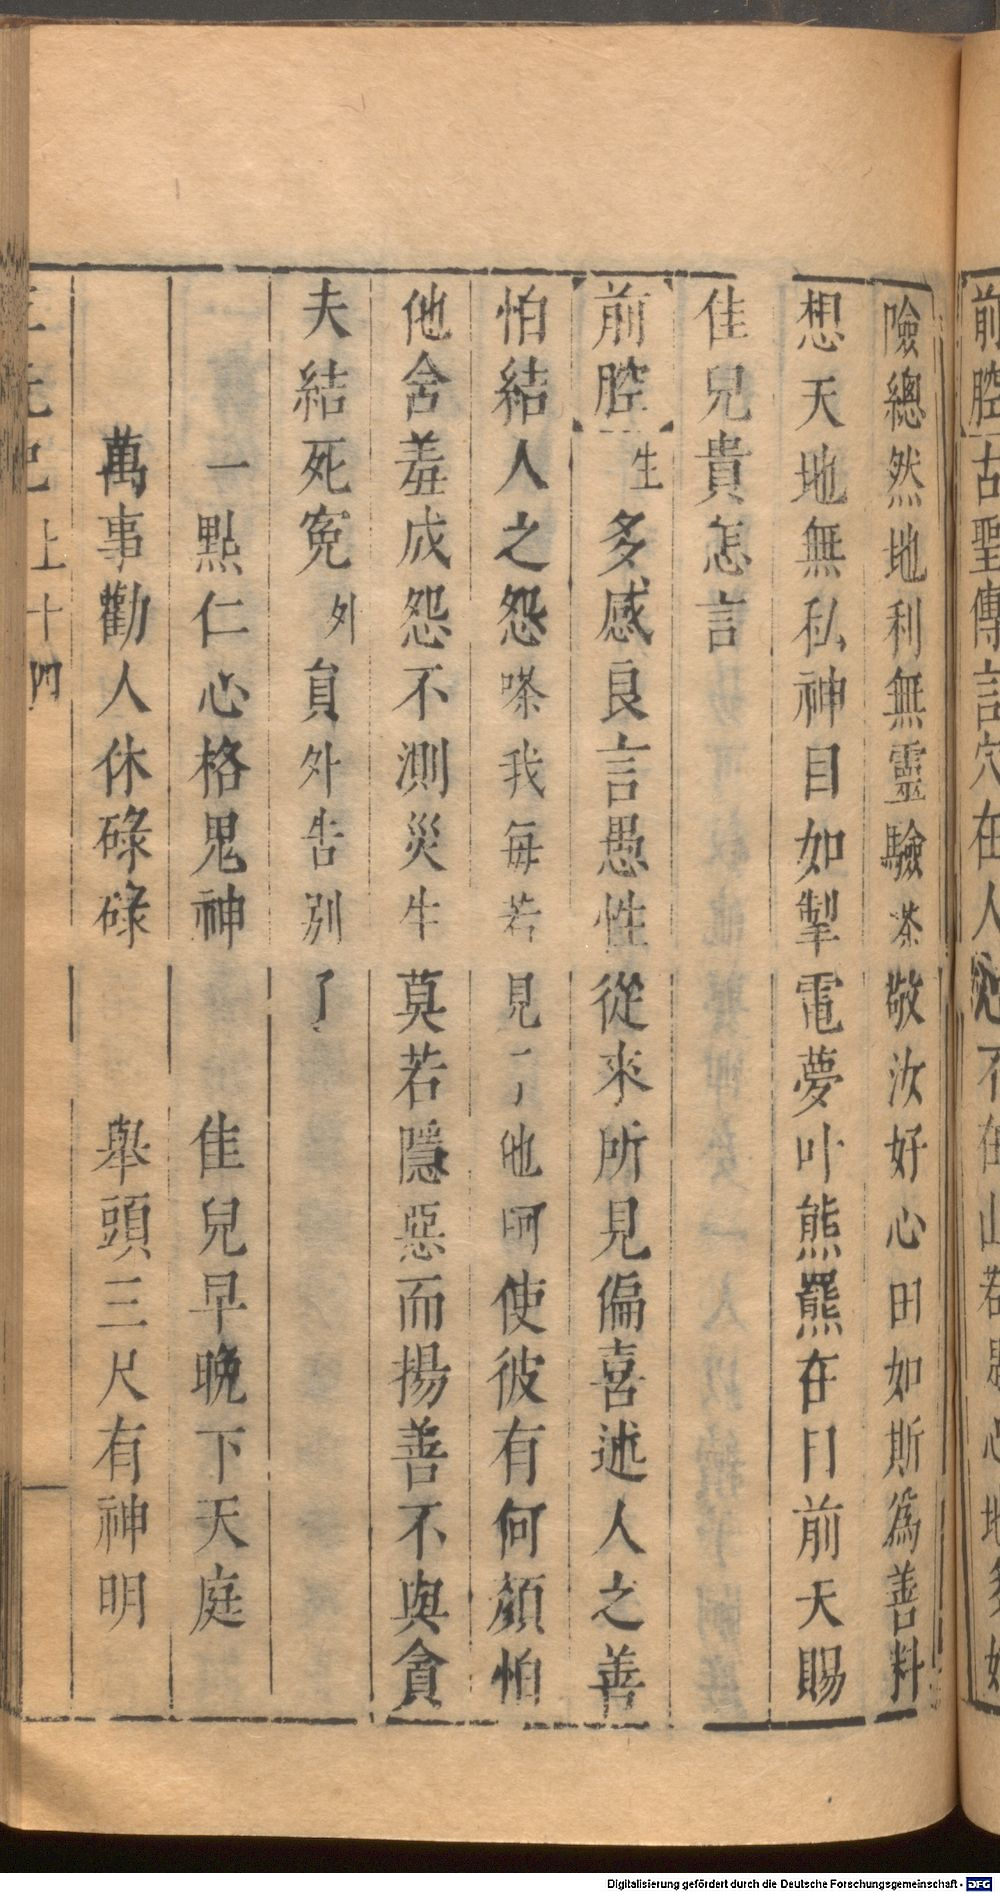 前腔古聖傳言穴在人心不在山若是心地多如
險總然地利無靈驗荼敬汝好心田如斯爲善料
想天地無私神目如掣電夢叶熊羆在目前天賜
佳兒貴怎言
前腔生多感良言愚性從來所見偏喜述人之善
怕結人之怨嗏我每若見了他呵使彼有何顏怕
他舍羞成怨不測災生莫若隱惡而揚善不與貪
夫結死寃外員外告別了
一點仁心格鬼神 佳兒早晚下天庭
萬事勸人休碌碌 舉頭三尺有神明
三元記上十四
Digitalisierung gefördert durch die Deutsche Forschungsgemeinschaft - DFG